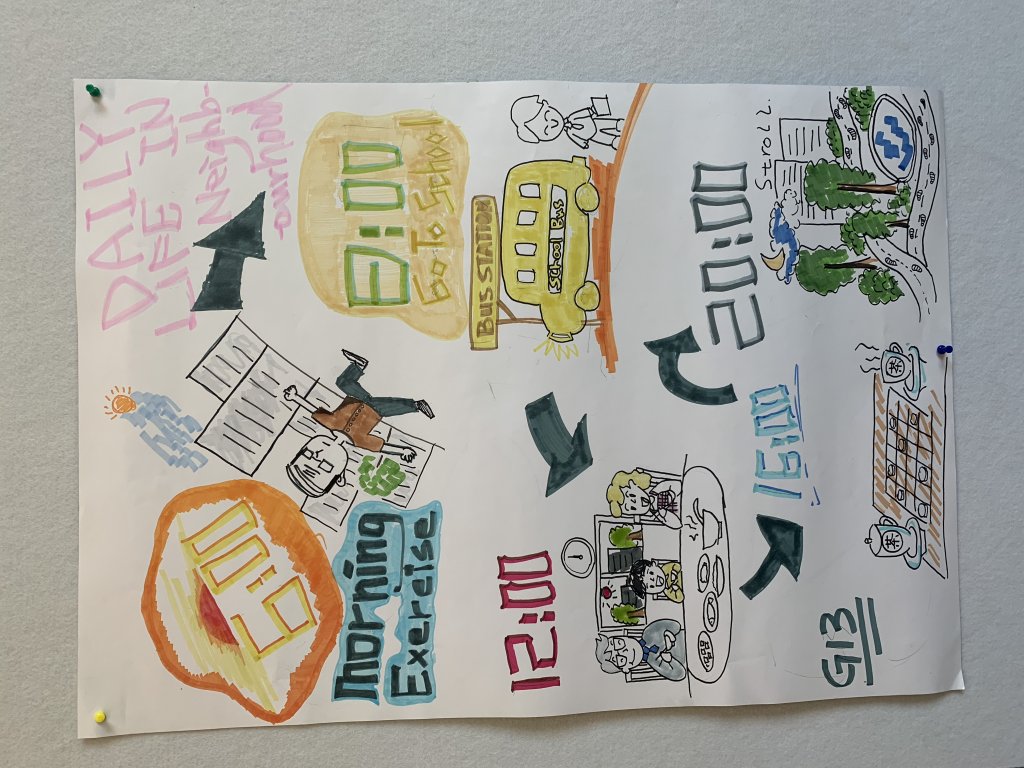 DAILY
LIFE IN
Neighb-
-ourhood
6:00
Morning
Exercise
8:00
Go To School
BUS STATION
School Bus
12:00
20:00
Stroll.
16:00
茶
茶
G13